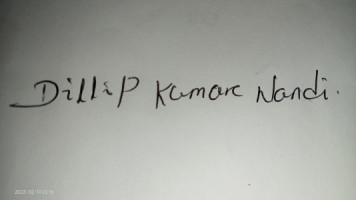 Dillip Kumar Nandi.